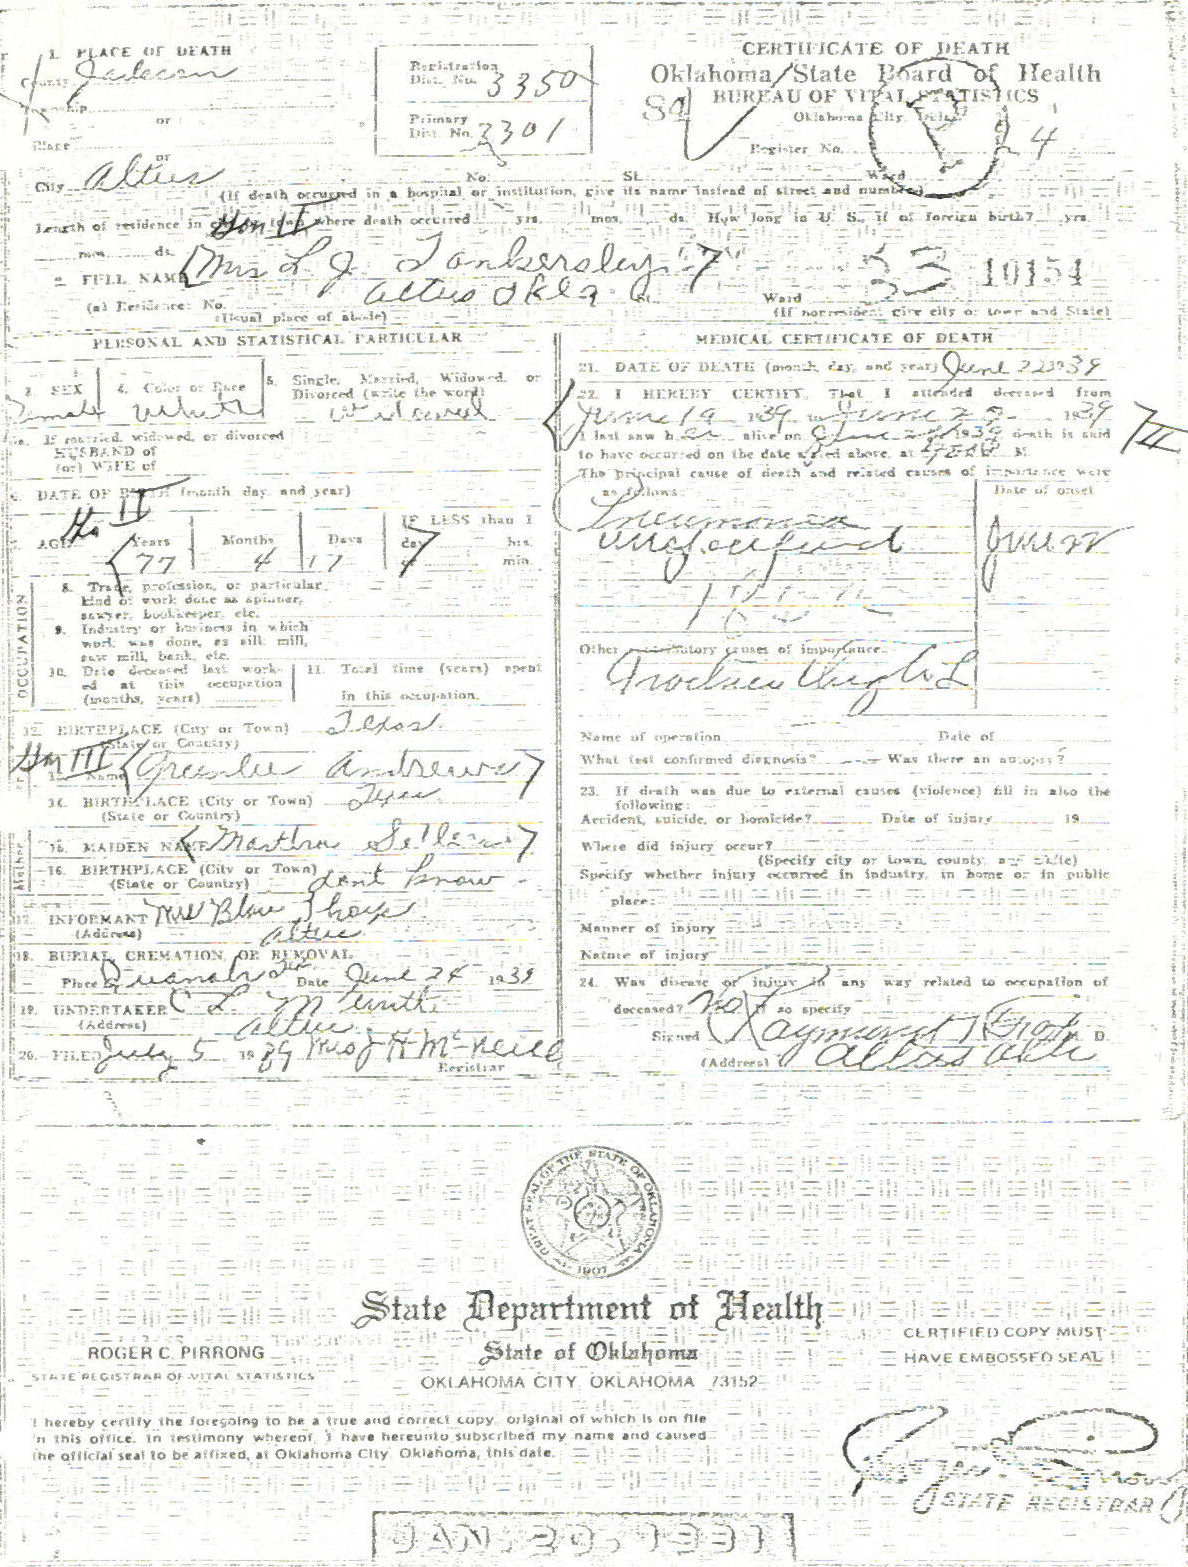 1. PLACE OF DEATH
County Jackson
Township
or
Place
or
City Altus No. St. Ward
(If death occurred in a hospital or institution, give its name instead of street and number)
Registration
Dist. No. 3350
Primary
Dist. No. 3301
CERTIFICATE OF DEATH
Oklahoma State Board of Health
BUREAU OF VITAL STATISTICS
Oklahoma City, Okla.
89
Register No. 4
Length of residence in where death occurred yrs. mos. ds. How long in U. S., if of foreign birth? yrs.
mos. ds.
2. FULL NAME Mrs L. J. Tankersley
33 10154
(a) Residence: No. Altus Okla St. Ward
(Usual place of abode) (If nonresident give city or town and State)
PERSONAL AND STATISTICAL PARTICULAR
3. SEX
Female
4. Color or Race
White
5. Single, Married, Widowed, or
Divorced (write the word)
Widowed
5a. If married, widowed, or divorced
HUSBAND of
(or) WIFE of
6. DATE OF BIRTH (month, day, and year)
7. AGE Years Months Days IF LESS than 1
day hrs.
77 4 17 or min.
OCCUPATION
8. Trade, profession, or particular
kind of work done as spinner,
sawyer, bookkeeper, etc.
9. Industry or business in which
work was done, as silk mill,
saw mill, bank, etc.
10. Date deceased last work-
ed at this occupation
(months, years)
11. Total time (years) spent
in this occupation.
12. BIRTHPLACE (City or Town) Texas
(State or Country)
13. Name Greenlee Andrews
14. BIRTHPLACE (City or Town) Texas
(State or Country)
Mother
15. MAIDEN NAME Martha
16. BIRTHPLACE (City or Town) dont know
(State or Country)
17. INFORMANT Mrs
(Address) Altus
18. BURIAL, CREMATION, OR REMOVAL
Place Quanah Tex Date June 24 1939
19. UNDERTAKER C L
(Address) Altus
20. FILED July 5 1939 Mrs J H McNeill
Registrar
MEDICAL CERTIFICATE OF DEATH
21. DATE OF DEATH (month, day, and year) June 22 1939
22. I HEREBY CERTIFY, That I attended deceased from
June 19 1939 to June 22 1939
I last saw her alive on June 1939 death is said
to have occurred on the date stated above, at M.
The principal cause of death and related causes of importance were
as follows: Date of onset
Pneumonia
unspecified June
Other contributory causes of importance:
Name of operation Date of
What test confirmed diagnosis? Was there an autopsy?
23. If death was due to external causes (violence) fill in also the
following:
Accident, suicide, or homicide? Date of injury 19
Where did injury occur?
(Specify city or town, county, and State)
Specify whether injury occurred in industry, in home or in public
place:
Manner of injury
Nature of injury
24. Was disease or injury in any way related to occupation of
deceased? No If so specify
Signed Raymond D.
(Address) Altus Okla
GREAT SEAL OF THE STATE OF OKLAHOMA
1907
State Department of Health
State of Oklahoma
OKLAHOMA CITY, OKLAHOMA 73152
ROGER C. PIRRONG
STATE REGISTRAR OF VITAL STATISTICS
CERTIFIED COPY MUST
HAVE EMBOSSED SEAL
I hereby certify the foregoing to be a true and correct copy, original of which is on file
in this office. In testimony whereof, I have hereunto subscribed my name and caused
the official seal to be affixed, at Oklahoma City, Oklahoma, this date.
STATE REGISTRAR